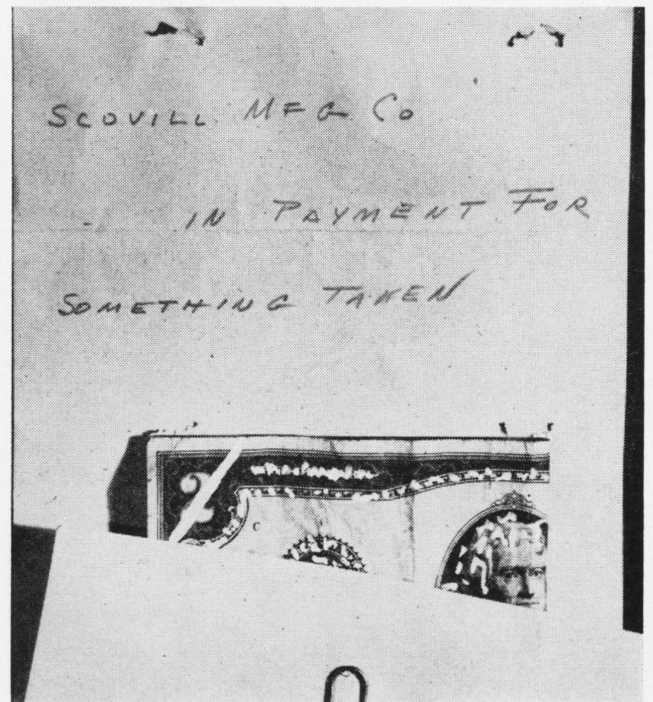 SCOVILL MFG Co
IN PAYMENT FOR
SOMETHING TAKEN
2
C